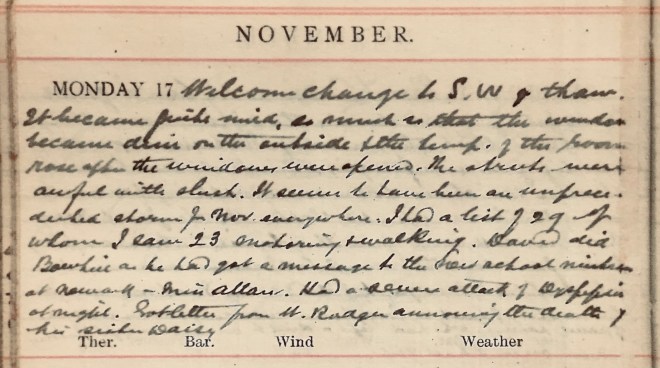 NOVEMBER.
MONDAY 17 Welcome change to S.W & thaw.
It became quite mild, so much so that the window
became dim on the outside & the temp. of the room
rose after the windows were opened. The streets were
awful with slush. It seems to have been an unprece-
dented storm for Nov. everywhere. I had a list of 29 of
whom I saw 23 motoring & walking. David did
Bowhill as he had got a message to the new school
at Newark – Miss Allan. Had a severe attack of Dyspepsia
at night. Got letter from W. Rodger announcing the death of
his sister Daisy
Ther. Bar. Wind Weather